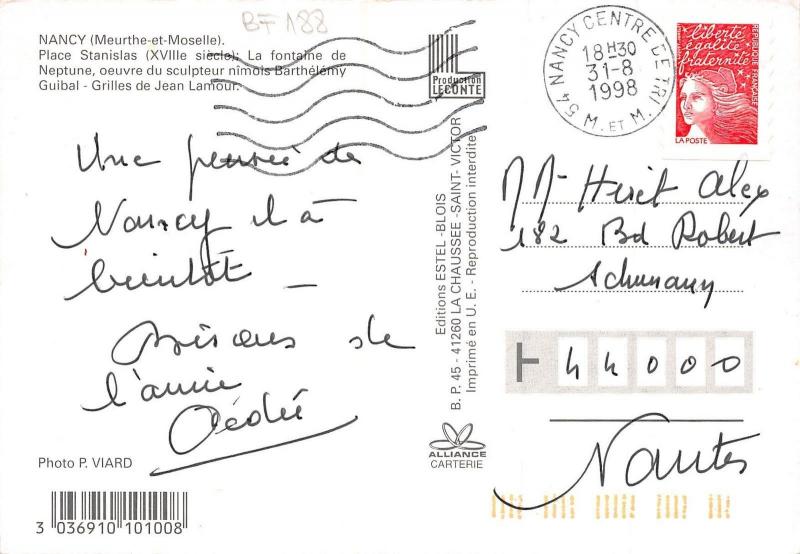 BF 188
NANCY (Meurthe-et-Moselle).
Place Stanislas (XVIIIe siècle): La fontaine de
Neptune, oeuvre du sculpteur nîmois Barthélémy
Guibal - Grilles de Jean Lamour.
Production
LECONTE
54 NANCY CENTRE DE TRI
18 H 30
31-8
1998
M. ET M.
liberté
égalité
fraternité
REPUBLIQUE FRANÇAISE
LA POSTE
Une pensée de
Nancy et à
bientôt _
Bisous de
l'amie
Editions ESTEL - BLOIS
B. P. 45 - 41260 LA CHAUSSEE -SAINT- VICTOR
Imprimé en U. E. - Reproduction interdite
Alex
182 Bd Robert
Schumann
44000
Nantes
ALLIANCE
CARTERIE
Photo P. VIARD
3 036910 101008